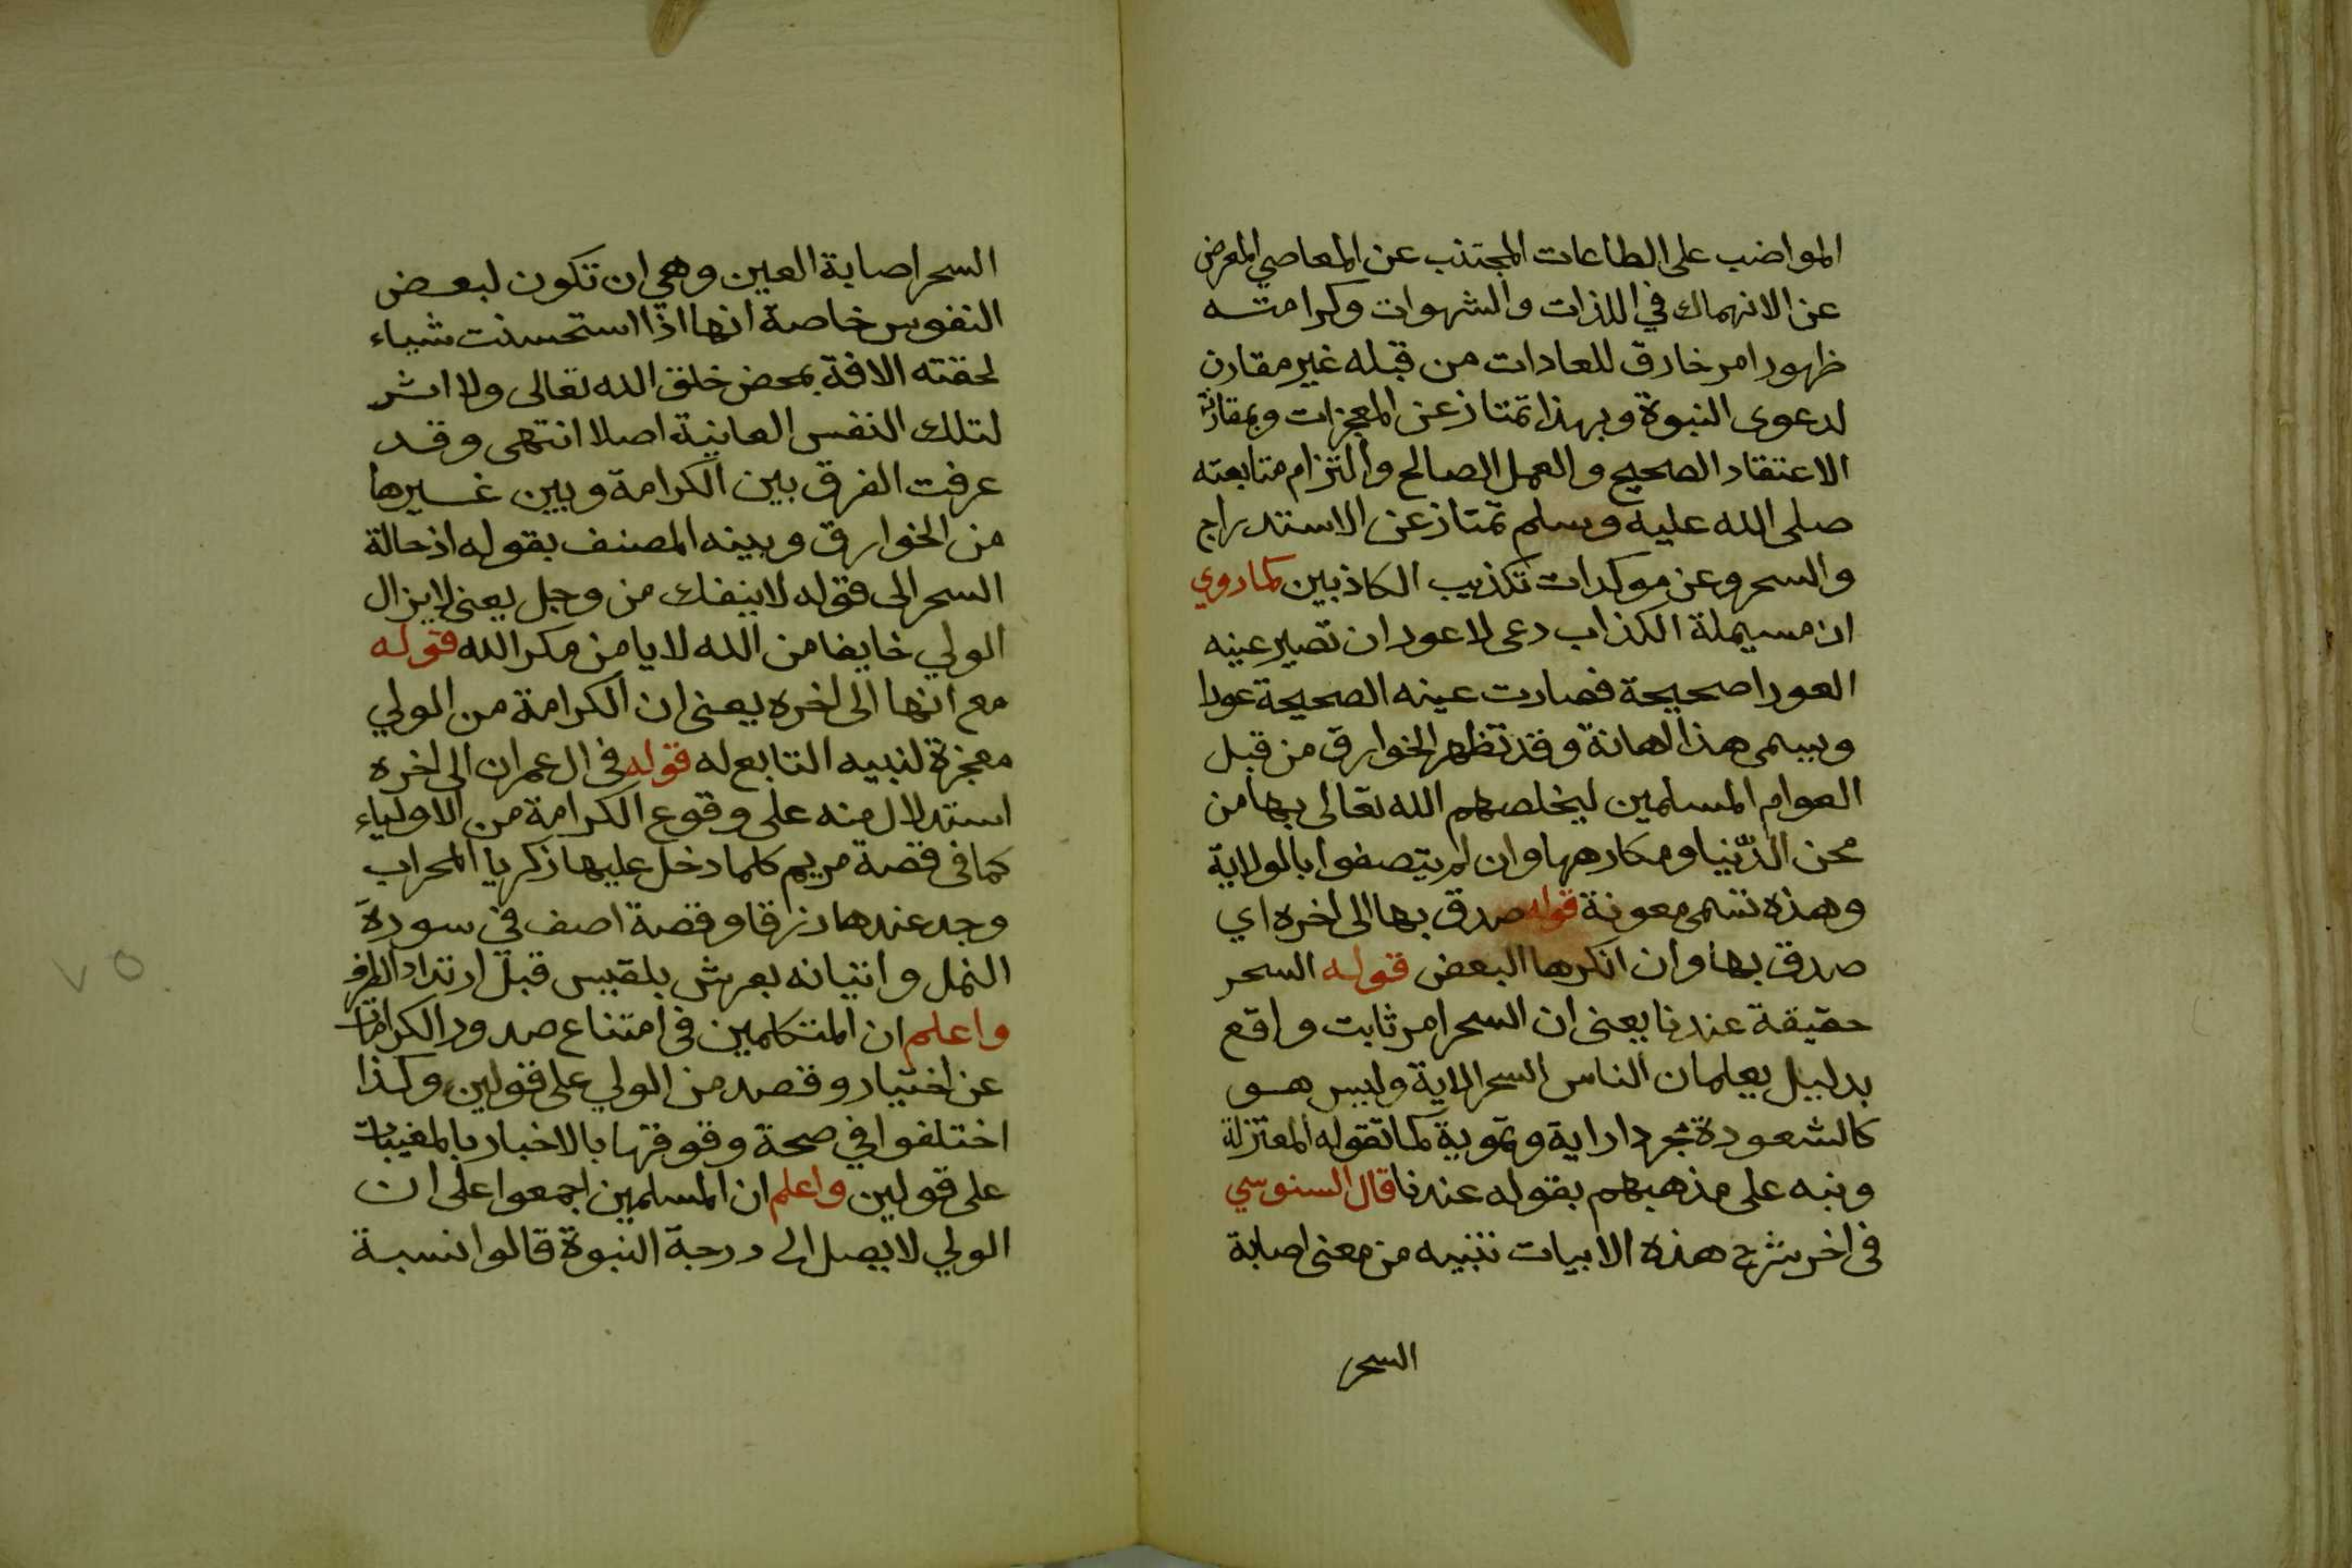 المواضب على الطاعات المجتنب عن المعاصي المعرض
عن الانهماك في اللذات والشهوات وكرامته
ظهور امر خارق للعادات من قبله غير مقارن
لدعوى النبوة وبهذا تمتاز عن المعجزات وبمقارنة
الاعتقاد الصحيح والعمل الصالح والتزام متابعته
صلى الله عليه وسلم تمتاز عن الاستدراج
والسحر وعن موكدات تكذيب الكاذبين كما روي
ان مسيملة الكذاب دعى لاعور ان تصير عينه
العورا صحيحة فصارت عينه الصحيحة عورا
ويسمى هذا اهانة وقد تظهر الخوارق من قبل
العوام المسلمين ليخلصهم الله تعالى بها من
محن الدّنيا ومكارهها وان لم يتصفوا بالولاية
وهذه تسمى معونة قوله صدق بها الى اخره اي
صدق بها وان انكرها البعض قوله السحر
حقيقة عندنا يعنى ان السحر امر ثابت واقع
بدليل يعلمان الناس السحر الاية وليس هو
كالشعودة مجرد اراية وتموية كما تقوله المعتزلة
ونبه على مذهبهم بقوله عندنا قال السنوسي
فى اخر شرح هذه الابيات تنبيه من معنى اصابة
السحر
السحر اصابة العين وهي ان تكون لبعض
النفوس خاصة انها اذا استحسنت شياء
لحقته الافة بمحض خلق الله تعالى ولا اثر
لتلك النفس العانية اصلا انتهى وقد
عرفت الفرق بين الكرامة وبين غيرها
من الخوارق وبينه المصنف بقوله اذ حالة
السحر الى قوله لا ينفك من وجل يعنى لا يزال
الولي خايفا من الله لا يامن مكر الله قوله
مع انها الى اخره يعنى ان الكرامة من الولي
معجزة لنبيه التابع له قوله فى ال عمران الى اخره
استدلال منه على وقوع الكرامة من الاولياء
كما فى قصة مريم كلما دخل عليها زكريا المحراب
وجد عندها رزقا وقصة اصف في سورة
النمل واتيانه بعرش بلقيس قبل ارتداد الطرف
واعلم ان المتكلمين فى امتناع صدور الكرامات
عن اختيار وقصد من الولي على قولين وكذا
اختلفوا في صحة وقوفها بالاخبار بالمغيبات
على قولين واعلم ان المسلمين اجمعوا على ان
الولي لا يصل الى درجة النبوة قالوا نسبة
٧٥